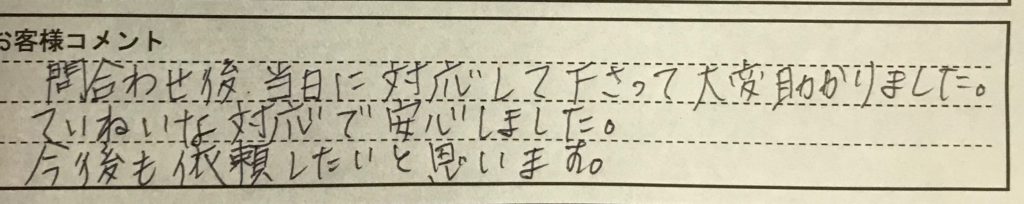 お客様コメント
問合わせ後、当日に対応して下さって大変助かりました。
ていねいな対応で安心しました。
今後も依頼したいと思います。